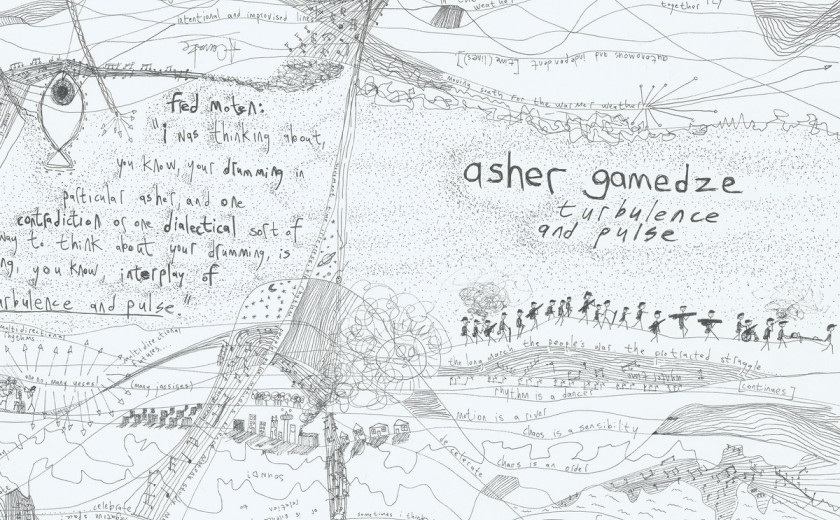 weather
together
intentional and improvised lines
autonomous and independent [time (lines)]
moving south for the warmer weather
fred moten:
"i was thinking about,
you know, your drumming in
particular asher, and one
contradiction or one dialectical sort of
way to think about your drumming, is
you know, interplay of
turbulence and pulse."
asher gamedze
turbulence
and pulse
multidirectional
rhythms
multidirectional
futures
many, many years!
[many justices]
the long march the people's war the protracted struggle
[continues]
rhythm is a dancer
motion is a river
chaos is a sensibility
chaos is an order
decelerate
sound i
celebrate
sometimes i think